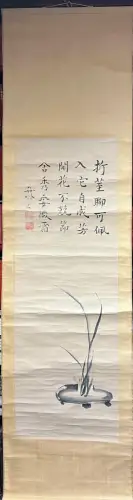 折莖聊可佩
入室自成芳
開花不競節
含秀委微霜